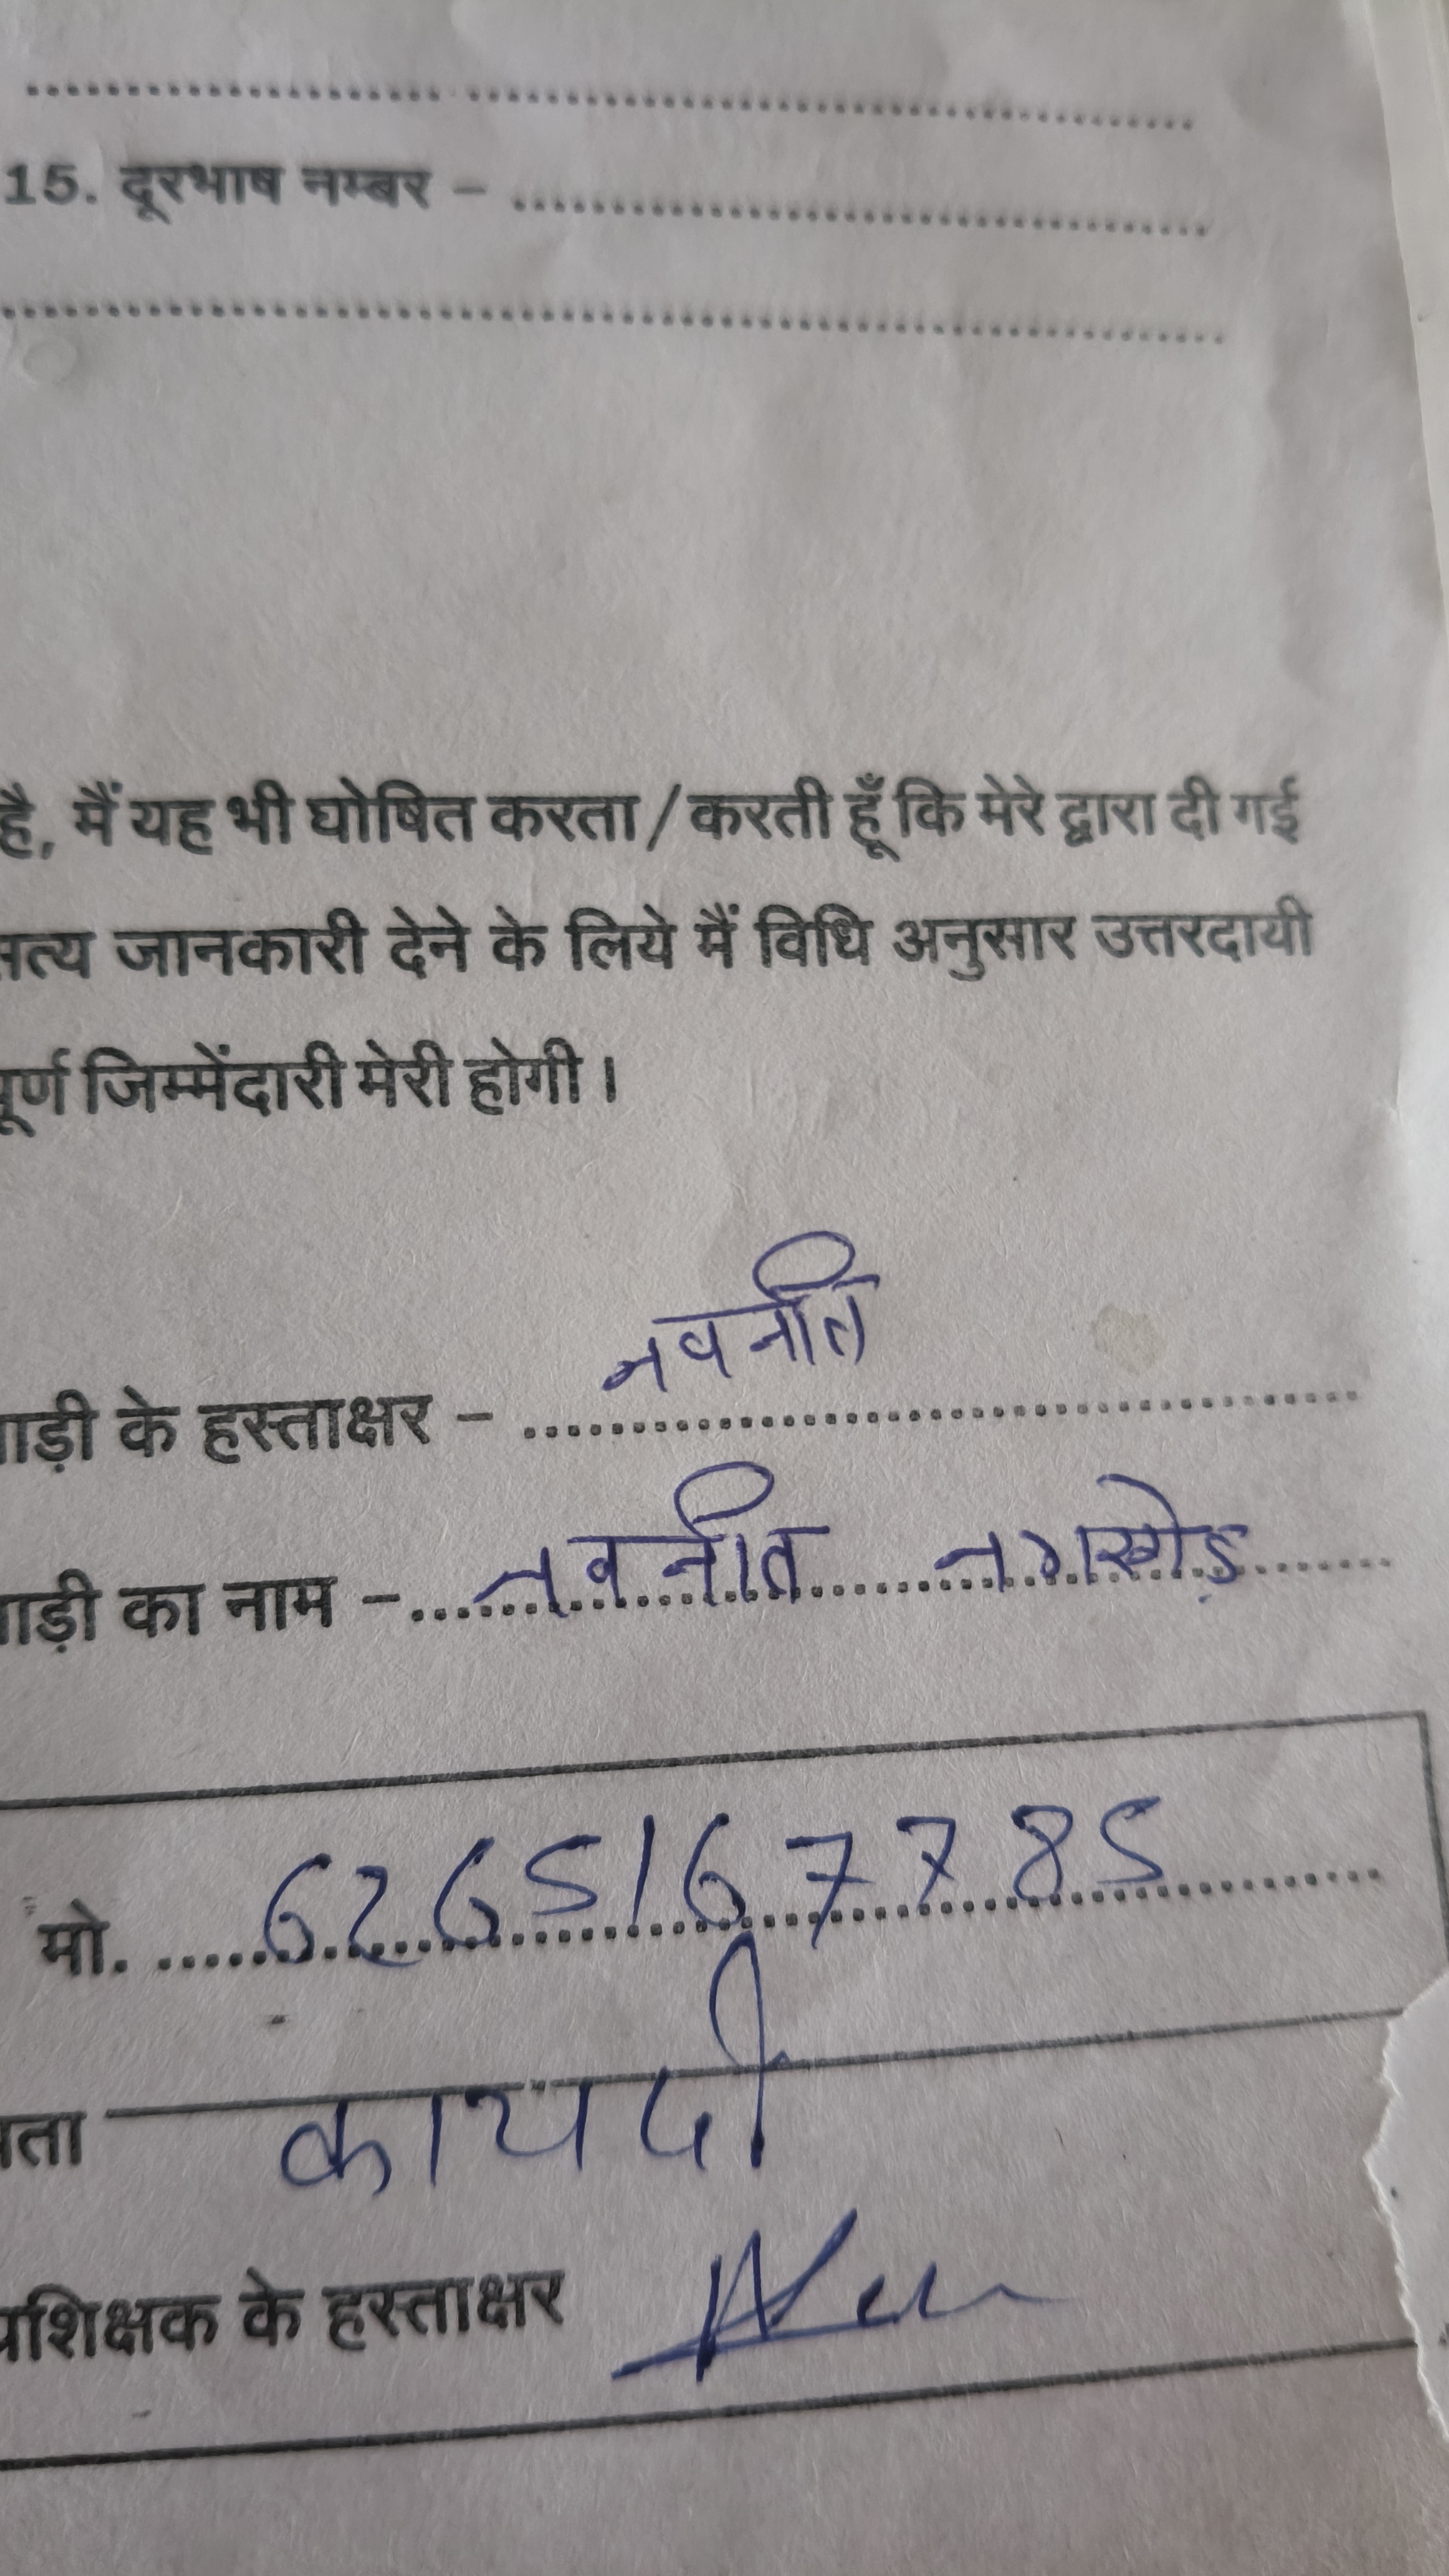 15. दूरभाष नम्बर –
है, मैं यह भी घोषित करता / करती हूँ कि मेरे द्वारा दी गई
सत्य जानकारी देने के लिये मैं विधि अनुसार उत्तरदायी
पूर्ण जिम्मेंदारी मेरी होगी।
नवनीत
ाड़ी के हस्ताक्षर –
ाड़ी का नाम – नवनीत
मो. 6265167785
कायदी
प्रशिक्षक के हस्ताक्षर